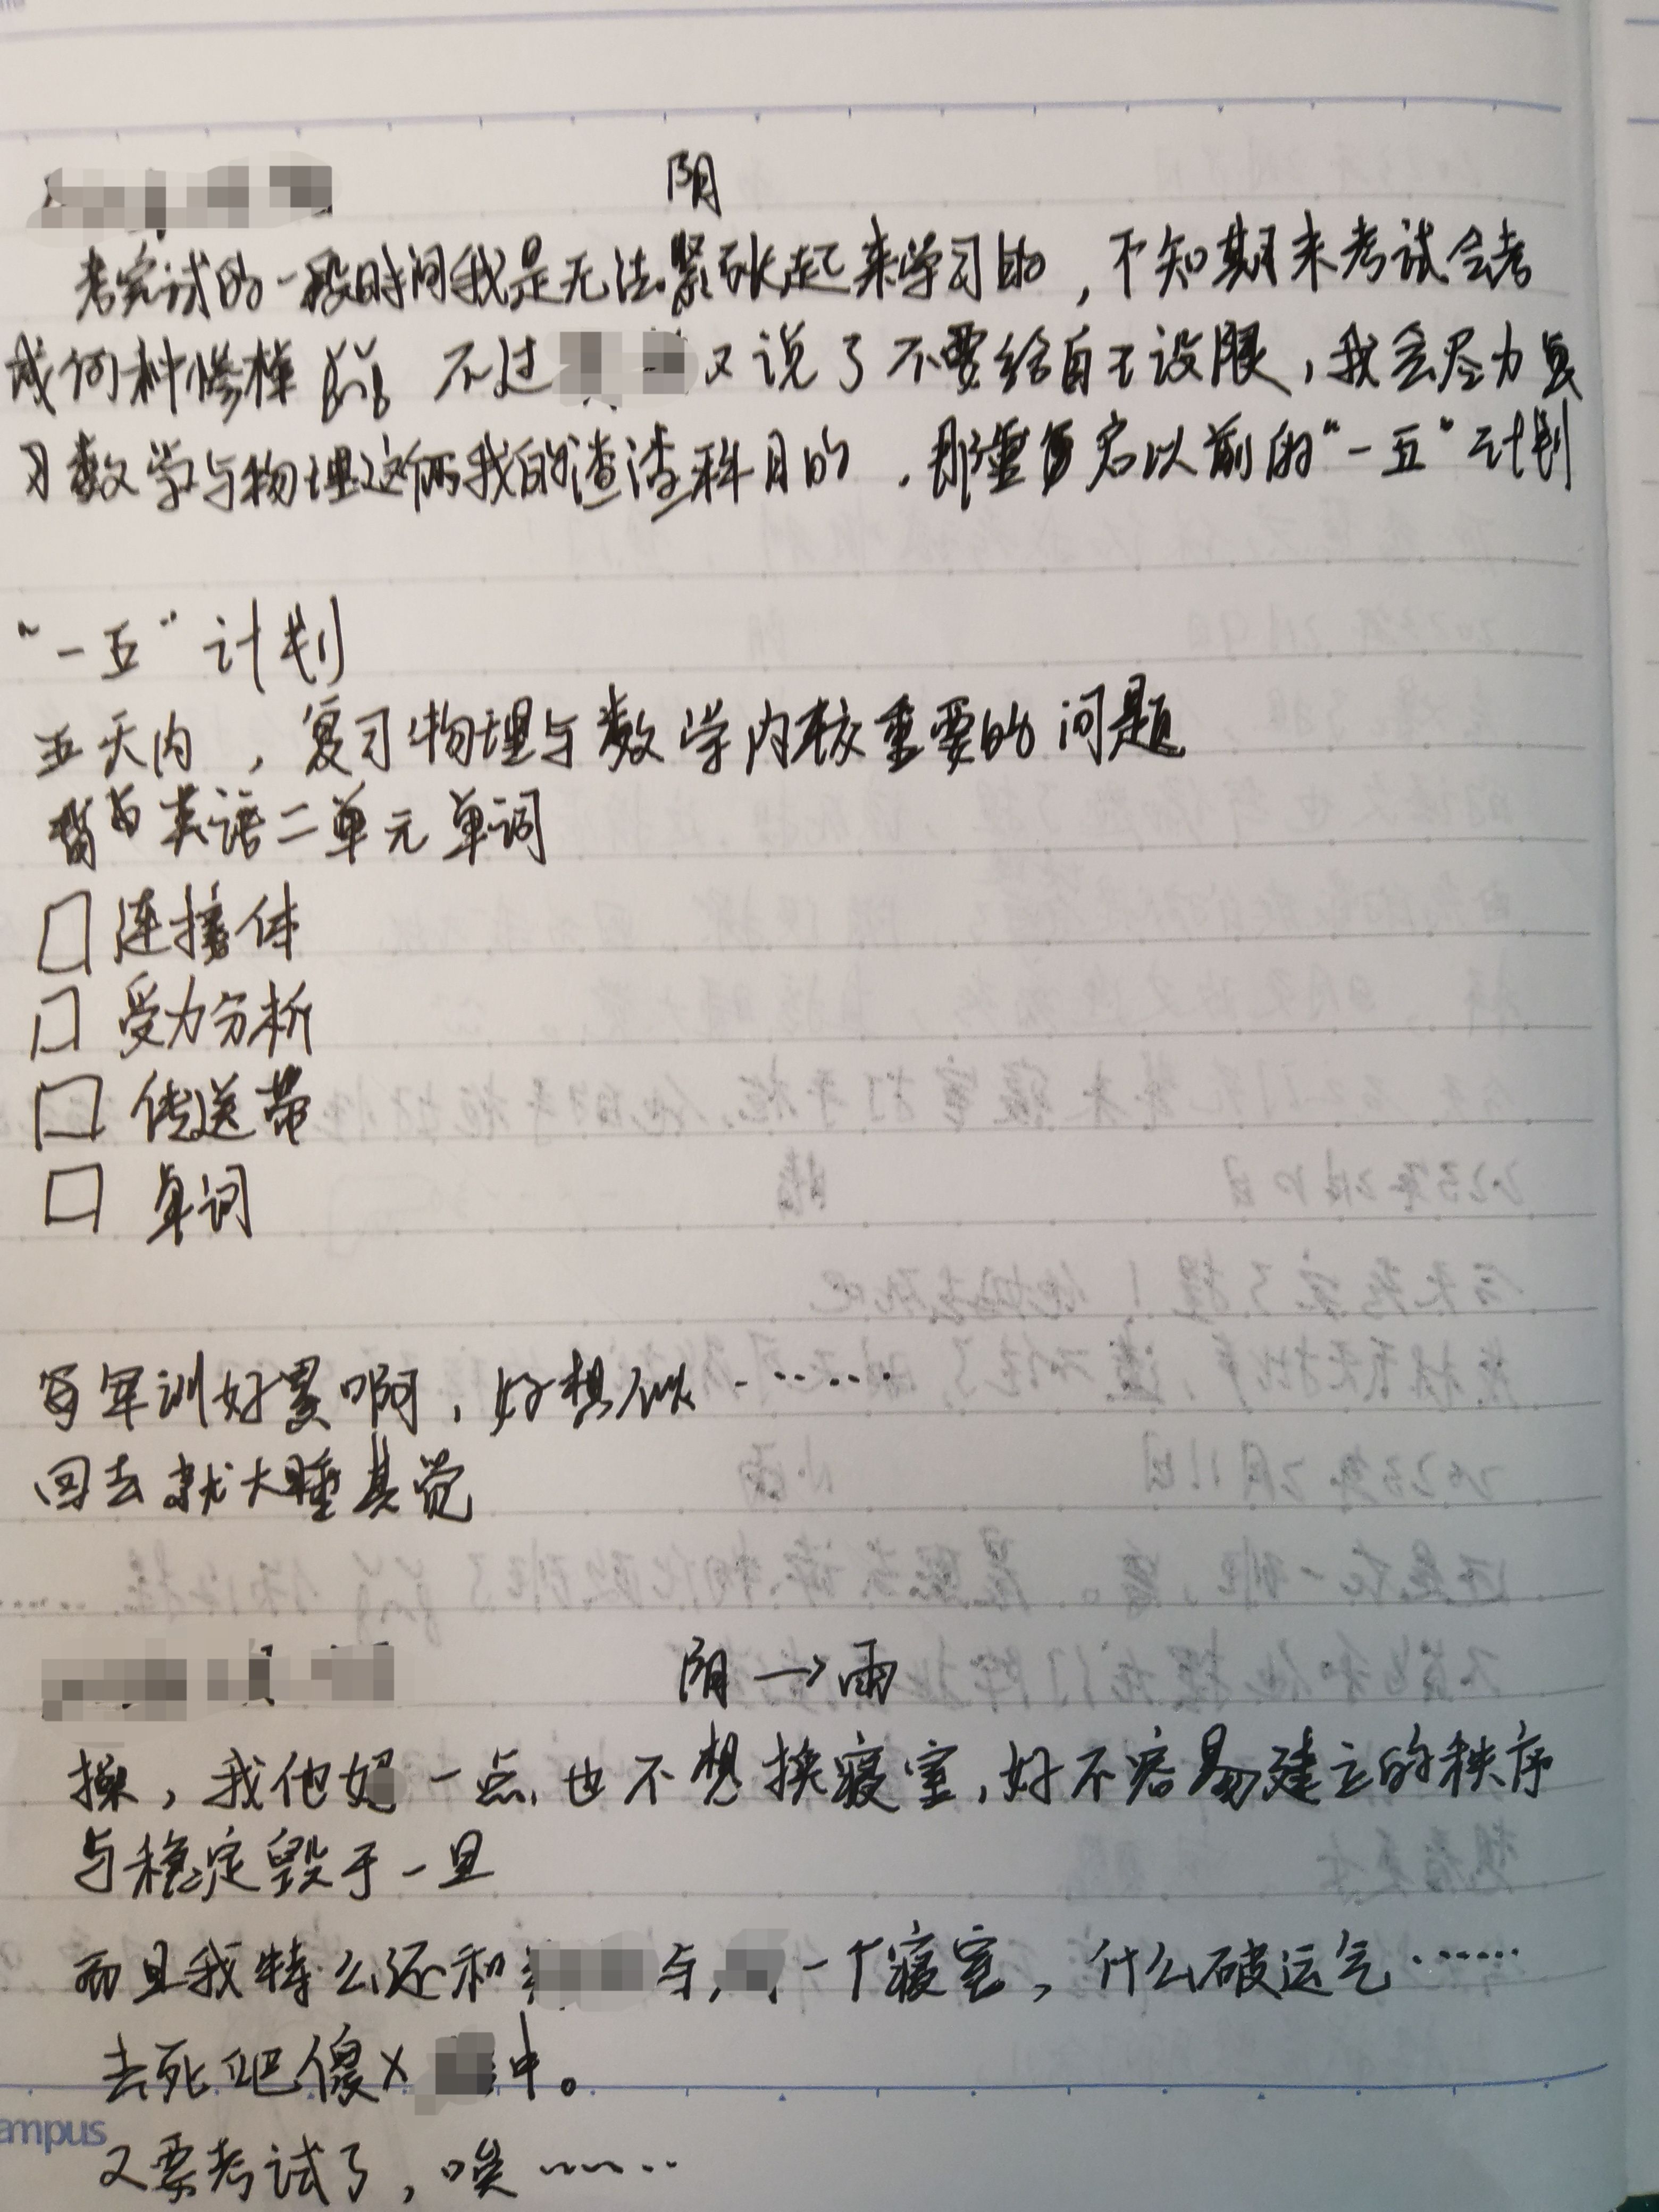 阴
考完试的一段时间我是无法紧张起来学习的，不知期末考试会考
成何种惨样 不过 又说了不要给自己设限，我会尽力复
习数学与物理这俩我的渣渣科目的，那重启以前的“一五”计划
“一五”计划
五天内，复习物理与数学内较重要的问题
背英语二单元单词
□ 连接体
□ 受力分析
□ 传送带
□ 单词
军训好累啊，好想似………
回去就大睡其觉
阴→雨
操，我他妈一点也不想换寝室，好不容易建立的秩序
与稳定毁于一旦
而且我特么还和 与 一个寝室，什么破运气……
去死吧傻X 中。
又要考试了，唉……
ampus